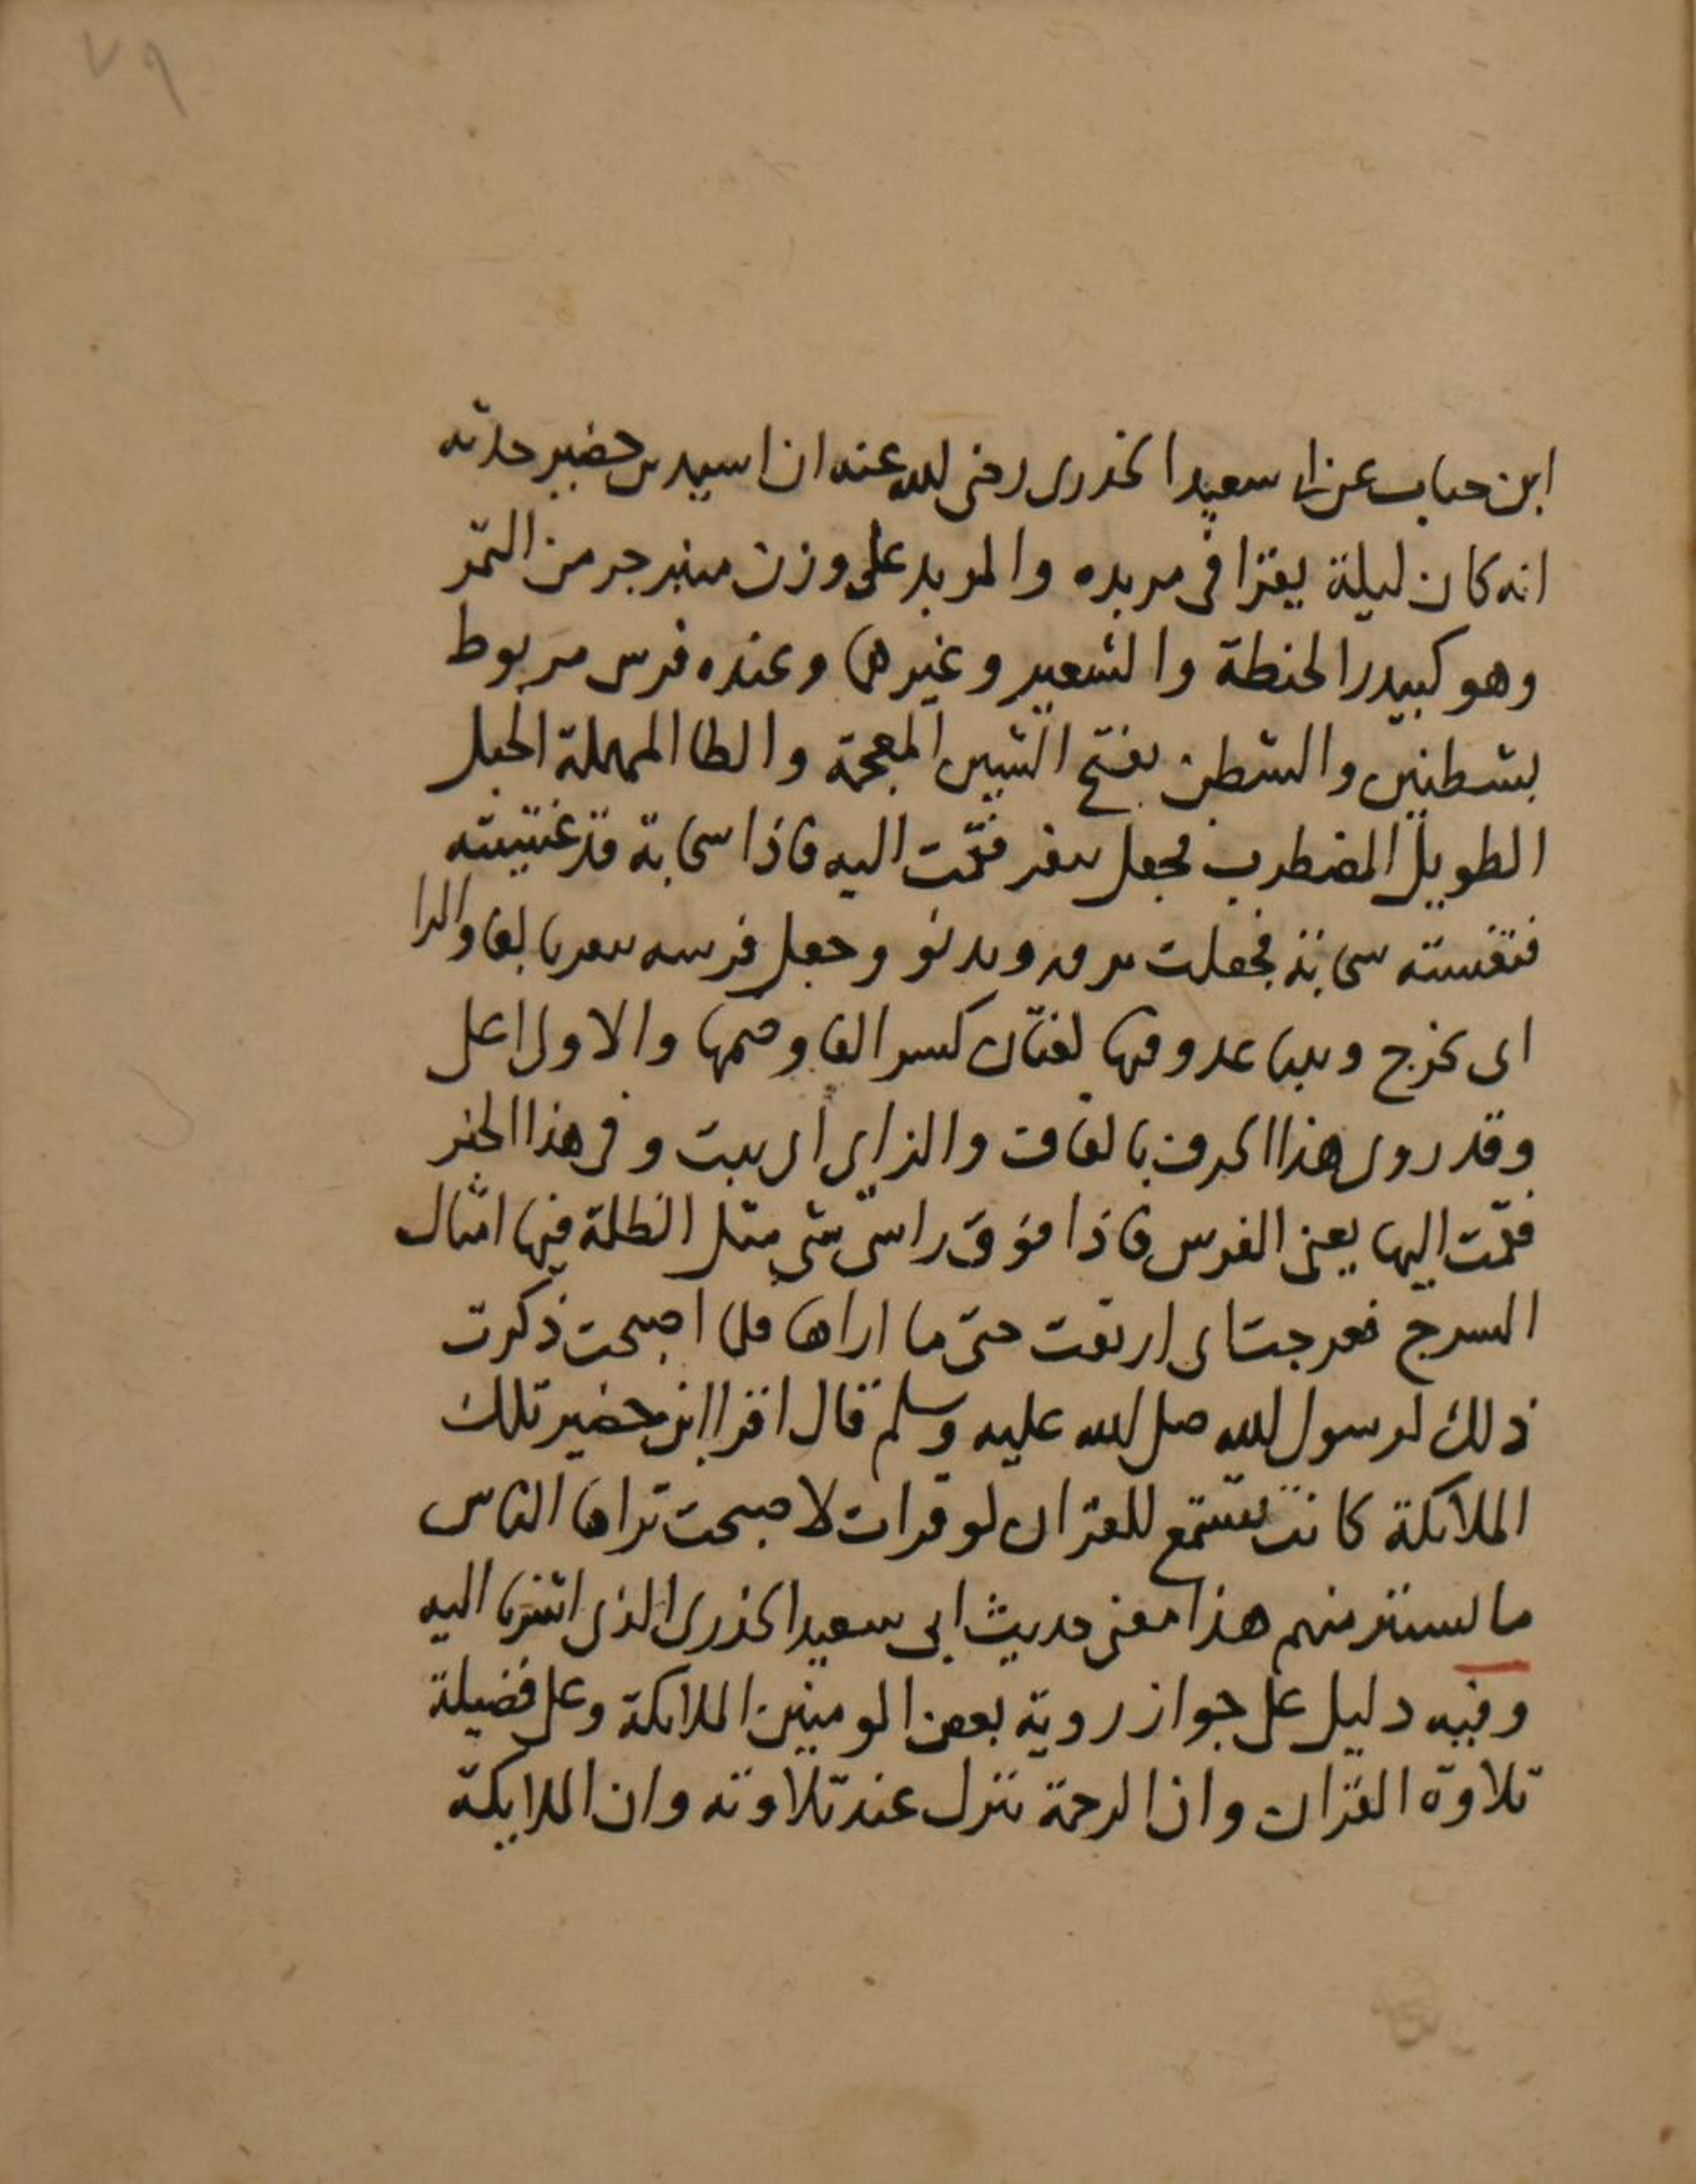 ٧٩
ابن حباب عن ابى سعيد الخدرى رضى الله عنه ان اسيد بن حضير حدثه
انه كان ليلة يقرا فى مربده والمربد على وزن منبر جر من التمر
وهو كبيدر الحنطة والشعير وغيرها وعنده فرس مربوط
بشطنين والشطن بفتح الشين المعجمة والطا المهملة الحبل
الطويل المضطرب فجعل ينفر فقمت اليه فاذا سحابة قد غشيته
فتغشته سحابة فجعلت تدور وتدنو وجعل فرسه ينفر بالفا والرا
اى يخرج وعدوفها لغتان كسر الفا وضمها والاول اعلى
وقد روى هذا الحرف بالقاف والزاى اى يثبت وفى هذا الخبر
فقمت اليها يعنى الفرس فاذا فوق راسى شى مثل الظلة فيها امثال
السرج فعرجت اى ارتفعت حتى ما اراها فلما اصبحت ذكرت
ذلك لرسول الله صلى الله عليه وسلم قال اقرا ابن حضير تلك
الملائكة كانت تستمع للقران لو قرات لاصبحت تراها الناس
ما تستتر منهم هذا معنى حديث ابى سعيد الخدرى الذى اشرنا اليه
وفيه دليل على جواز روية بعض المومنين الملائكة وعلى فضيلة
تلاوة القران وان الرحمة تنزل عند تلاوته وان الملايكة